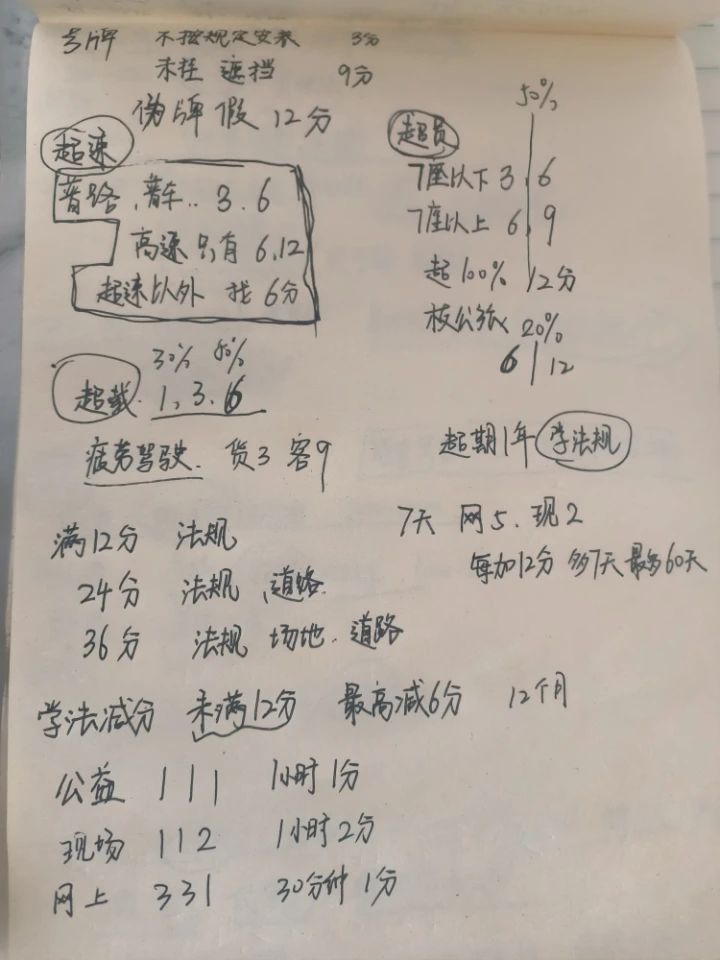 号牌 不按规定安装 3分
未挂 遮挡 9分
伪牌 假 12分
超速
普路、普车.. 3.6
高速 只有 6.12
超速以外 找 6分
超员
50%
7座以下 3.6
7座以上 6.9
超100% 12分
校公旅 20%
6 12
30% 50%
超载. 1.3.6
疲劳驾驶. 货3 客9
超期1年 学法规
满12分 法规
24分 法规、道路.
36分 法规 场地.道路
7天 网5.现2
每加12分 多7天 最多60天
学法减分 未满12分 最高减6分 12个月
公益 111 1小时 1分
现场 112 1小时 2分
网上 331 30分钟 1分